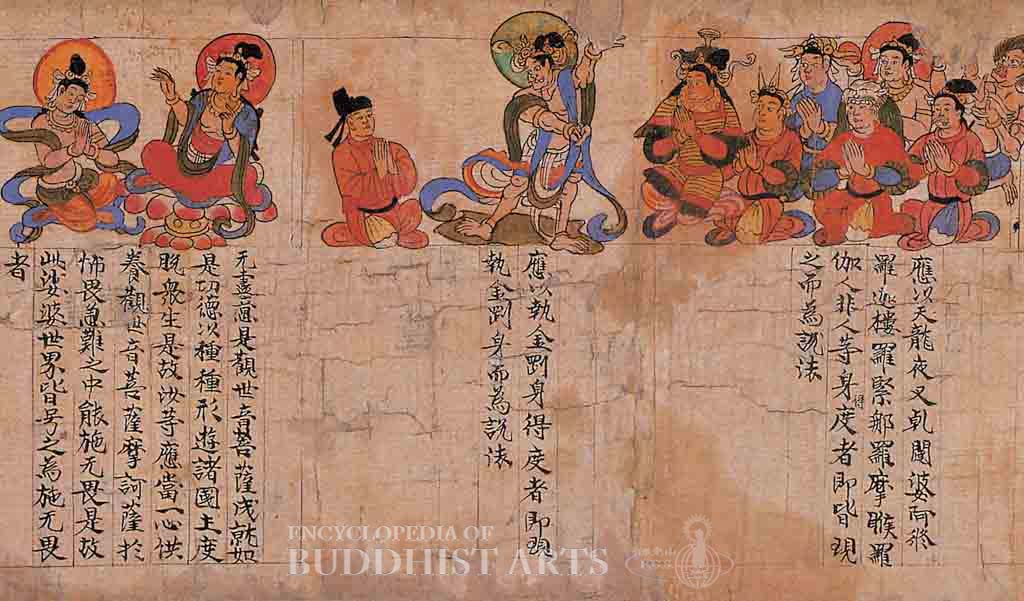 應以天龍夜叉乹闥婆阿脩
羅迦樓羅緊那羅摩睺羅
伽人非人等身得度者即皆現
之而為說法
應以執金剛身得度者即現
執金剛身而為說法
无盡意是觀世音菩薩成就如
是功德以種種形遊諸國土度
脫衆生是故汝等應當一心供
養觀世音菩薩摩訶薩於
怖畏急難之中能施无畏是故
此娑婆世界皆号之為施无畏
者
ENCYCLOPEDIA OF
BUDDHIST ARTS